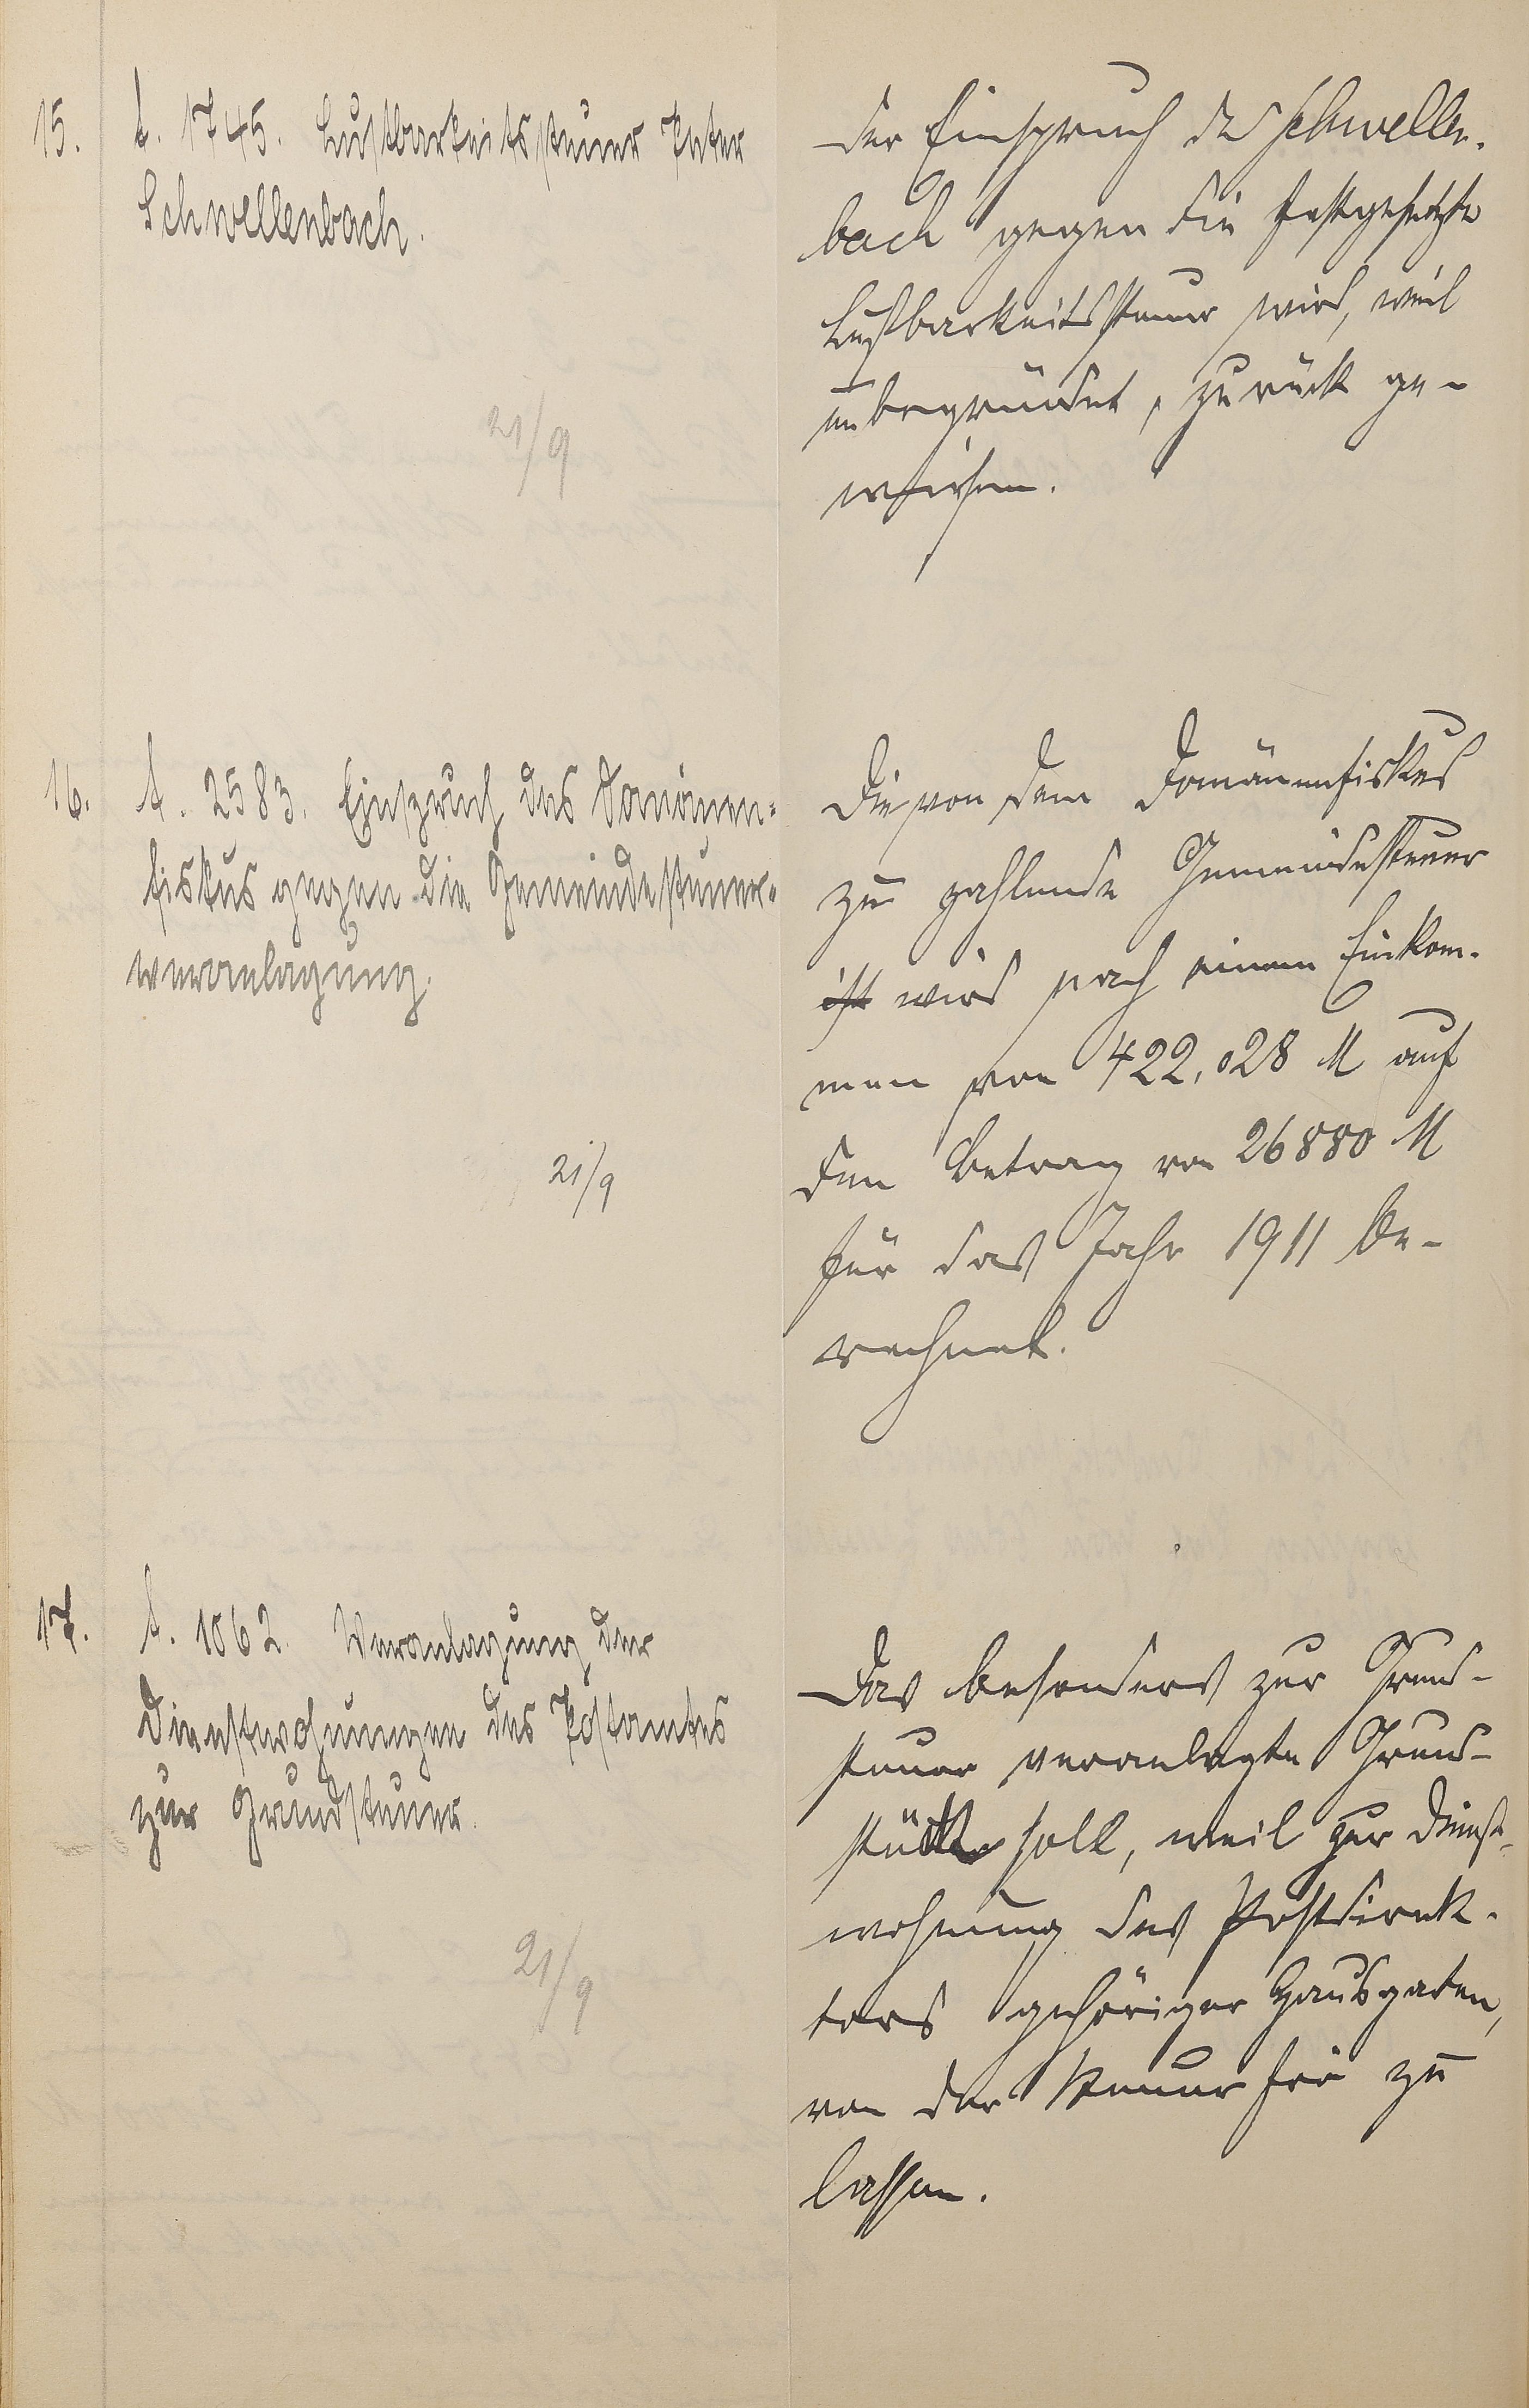 15. A. 1745. Lustbarkeitssteuer Peter
Schwellenbach.
21/9
Der Einspruch des Schwellen-
bach gegen die festgesetzte
Lustbarkeitssteuer wird, weil
unbegründet, zurück ge-
wiesen.
16. A. 2583. Einspruch des Domänen-
fiskus gegen die Gemeindesteuer-
veranlagung.
21/9
Die von dem Domänenfiskus
zu zahlende Gemeindesteuer
ist wird nach einem Einkom-
men von 422,028 M auf
den Betrag von 26880 M
für das Jahr 1911 be-
rechnet.
17. A. 1062. Veranlagung der
Dienstwohnungen des Postamtes
zur Grundsteuer.
21/9
Das besonders zur Grund-
steuer veranlagte Grund-
stück soll, weil zur Dienst-
wohnung des Postdirek-
tors gehöriger Hausgarten,
von der Steuer frei zu
lassen.